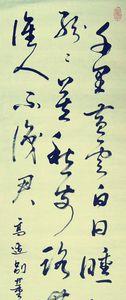 千里黄雲白日曛
紛〻莫愁前路
誰人不識君 高適別董